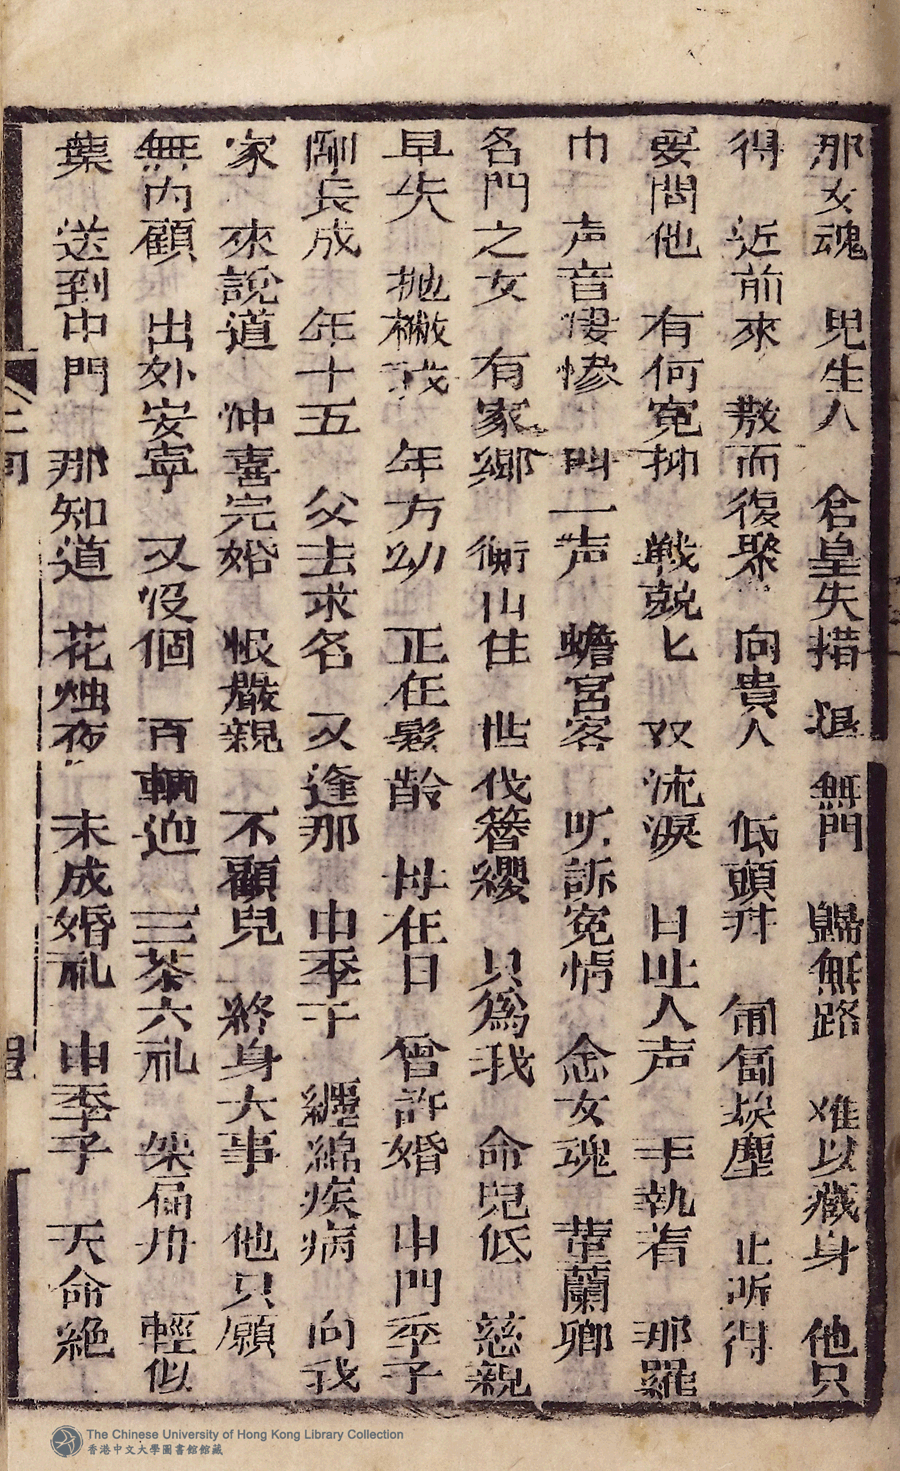 那女魂　見生人　倉皇失措　退無門　歸無路　难以藏身　他只
得　近前來　散而復聚　向貴人　低頭拜　匍匐埃塵　止所得
要問他　有何寃抑　戦兢匕　双流淚　口吐人声　手執着　那羅
巾　声音悽惨　叫一声　蟾宮客　听訴寃情　念女魂　董蘭卿
名門之女　有家鄉　衡山住　世伐簪纓　只為我　命兒低　慈親
早失　抛撇我　年方幼　正在髫齡　母在日　曾許婚　申門季子
剛長成　年十五　父去求名　又逢那　申季子　纏綿疾病　向我
家　來說道　冲喜完婚　恨嚴親　不顧兒　終身大事　他只願
無內顧　出外安寧　又没個　百輌迎　三茶六礼　架扁舟　輕似
葉　送到申門　那知道　花烛夜　未成婚礼　申季子　天命絕
The Chinese University of Hong Kong Library Collection
香港中文大學圖書館館藏